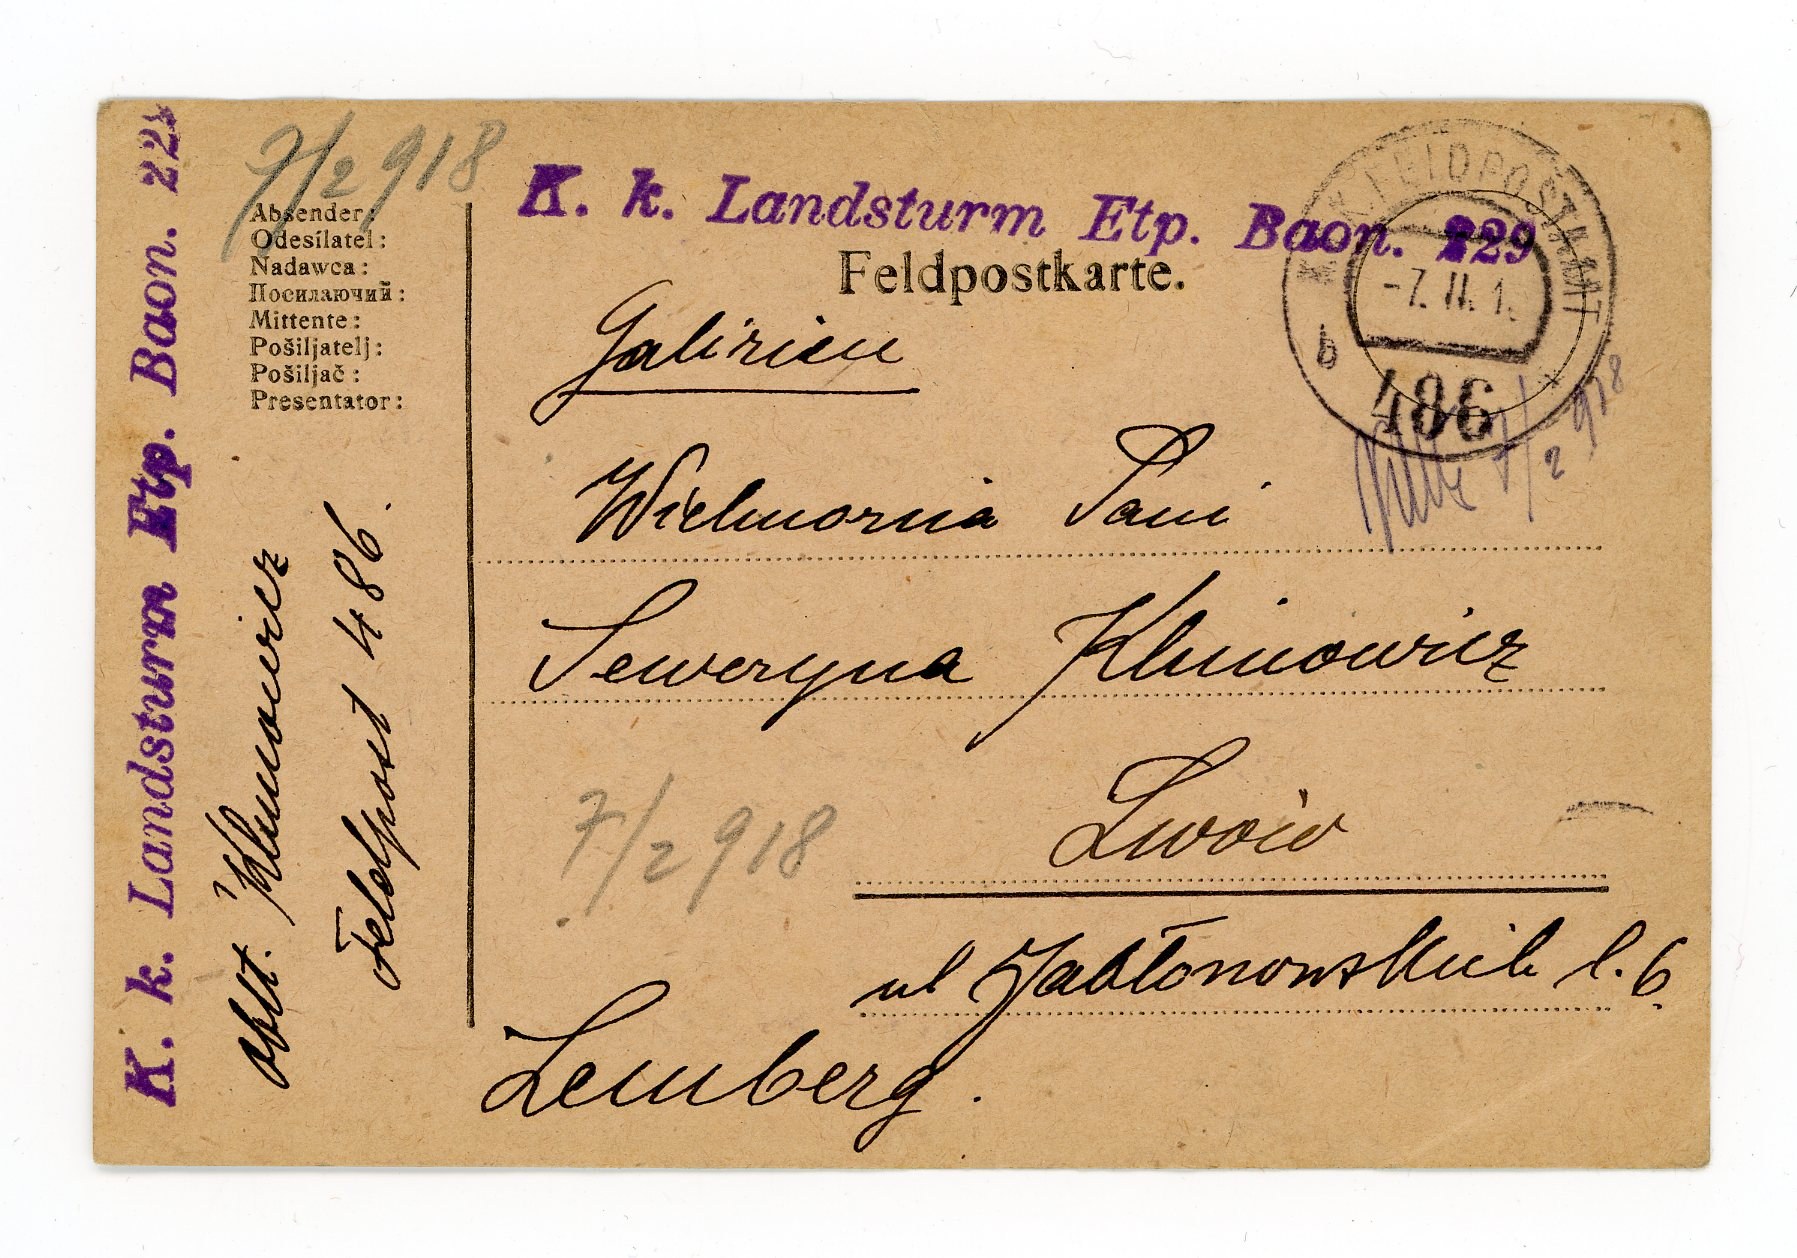 K. k. Landsturm Etp. Baon. 229
7/2 918
Absender:
Odesílatel:
Nadawca:
Посилаючий:
Mittente:
Pošiljatelj:
Pošiljač:
Presentator:
Klimowicz
Feldpost 486.
K. k. Landsturm Etp. Baon. 229
Feldpostkarte.
K. u. K. FELDPOSTAMT
-7. II. 1
b
486
7/2 918
Galizien
Wielmożna Pani
Seweryna Klimowicz
Lwów
7/2 918
ul Jabłonowskich l. 6.
Lemberg.